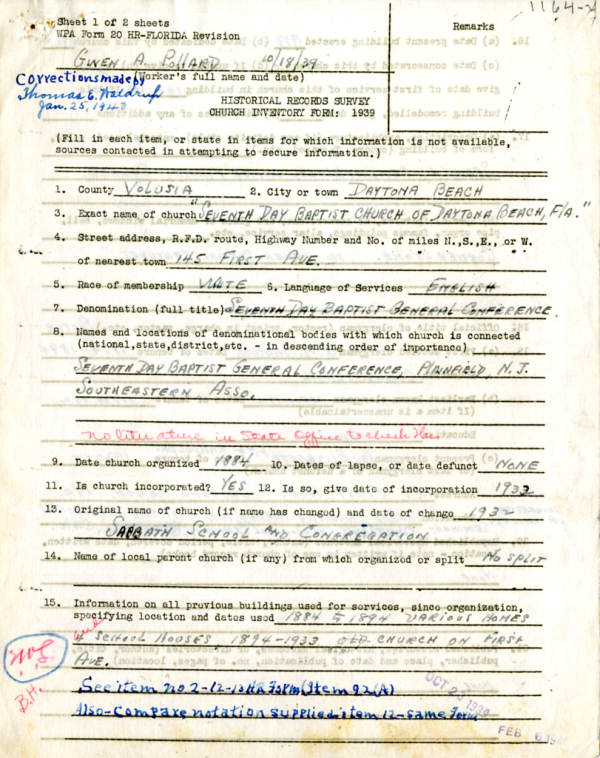 1164-2
Sheet 1 of 2 sheets
WPA Form 20 HR-FLORIDA Revision
Remarks
Gwen A. Pollard 10/18/39
(Worker's full name and date)
Corrections made by
Thomas E. Waldrup
Jan. 25, 1940
HISTORICAL RECORDS SURVEY
CHURCH INVENTORY FORM: 1939
(Fill in each item, or state in items for which information is not available,
sources contacted in attempting to secure information.)
1. County VOLUSIA 2. City or town DAYTONA BEACH
3. Exact name of church "SEVENTH DAY BAPTIST CHURCH OF DAYTONA BEACH, FLA."
4. Street address, R.F.D. route, Highway Number and No. of miles N.,S.,E., or W.
of nearest town 145 FIRST AVE.
5. Race of membership WHITE 6. Language of Services ENGLISH
7. Denomination (full title) SEVENTH DAY BAPTIST GENERAL CONFERENCE.
8. Names and locations of denominational bodies with which church is connected
(national,state,district,etc. - in descending order of importance)
SEVENTH DAY BAPTIST GENERAL CONFERENCE, PLAINFIELD, N. J.
SOUTHEASTERN ASSO.
no literature in State Office to check this
9. Date church organized 1884 10. Dates of lapse, or date defunct NONE
11. Is church incorporated? YES 12. Is so, give date of incorporation 1933
13. Original name of church (if name has changed) and date of change 1932
SABBATH SCHOOL AND CONGREGATION
14. Name of local parent church (if any) from which organized or split NO SPLIT
15. Information on all previous buildings used for services, since organization,
specifying location and dates used 1884 to 1894 VARIOUS HOMES
and SCHOOL HOUSES, 1894-1933 OLD CHURCH ON FIRST
AVE.
B.H.
See item no 2-12-13 HR Form (Item 92(A)
Also-Compare notation supplied item 12-same Form